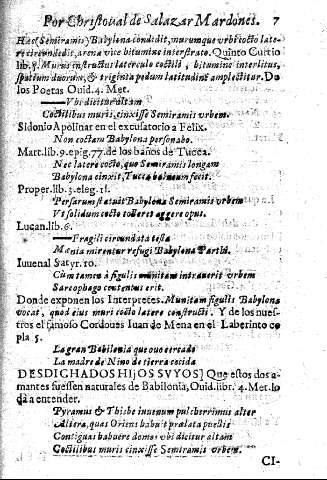 Por Christoual de Salazar Mardones. 7
Hæc (Semiramis) Babylona condidit, murumque vrbi cocto late-
re circundedit, arena vice bitumine interstrato. Quinto Curtio
lib. 5. Murus instructus laterculo coctili, bitumine interlitus,
spatium duorum, & triginta pedum latitudine amplectitur. De
los Poetas Ouid. 4. Met.
Vbi dicitur altam
Coctilibus muris, cinxisse Semiramis vrbem.
Sidonio Apolinar en el excusatorio a Felix.
Non coctam Babylona personabo.
Mart. lib. 9. epig. 77. de los baños de Tucca.
Nec latere cocto, quo Semiramis longam
Babylona cinxit, Tucca balneum fecit.
Proper. lib. 3. eleg. 11.
Persarum statuit Babylona Semiramis vrbem
Vt solidum cocto tolleret aggere opus.
Lucan. lib. 6.
Fragili circundata testa
Mœnia mirentur refugi Babylonia Parthi.
Iuuenal Satyr. 10.
Cum tamen à figulis munitam intrauerit vrbem
Sarcophago contentus erit.
Donde exponen los Interpretes. Munitam figulis Babylona
vocat, quod eius muri cocto latere constructi. Y de los nues-
tros el famoso Cordoues Iuan de Mena en el Laberinto co
pla 5.
La gran Babilonia que ouo cercado
La madre de Nino de tierra cocida
DESDICHADOS HIjOS SVYOS] Que estos dos a-
mantes fuessen naturales de Babilonia, Ouid. libr. 4. Met. lo
da a entender.
Pyramus & Thisbe iuuenum pulcherrimus alter
Altera, quas Oriens habuit prælata puellis
Contiguas habuere domos vbi dicitur altam
Coctilibus muris cinxisse Semiramis vrbem.
CI-